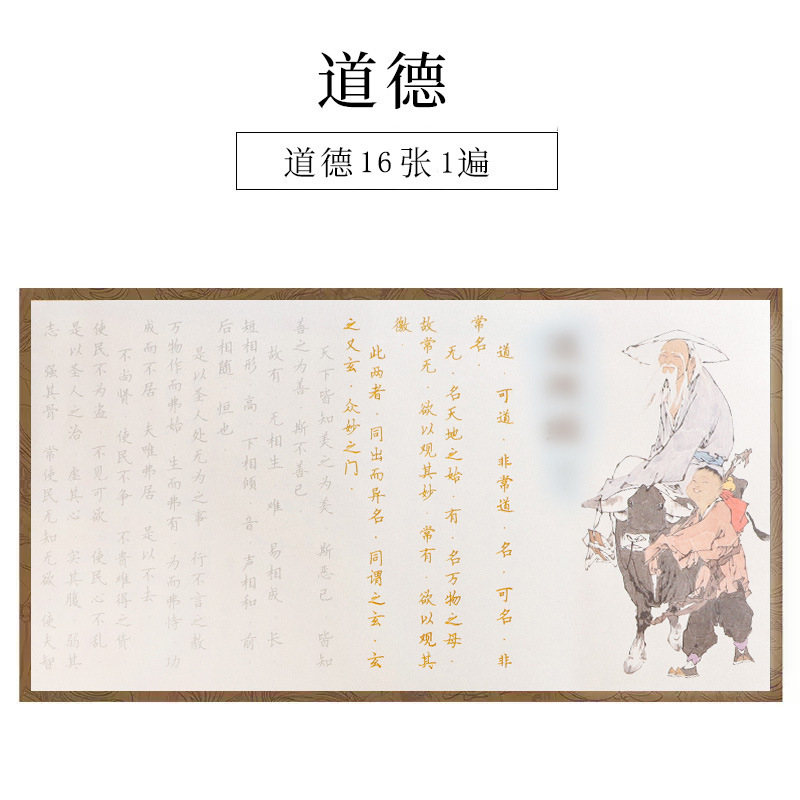 道德
道德16张1遍
道·可道·非常道·名·可名·非
常名·
无·名天地之始·有·名万物之母·
故常无·欲以观其妙·常有·欲以观其
徼·
此两者·同出而异名·同谓之玄·玄
之又玄·众妙之门·
天下皆知美之为美 斯恶已·皆知
善之为善·斯不善已
故有 无相生 难 易相成·长
短相形 高 下相倾 音 声相和 前
后相随 恒也·
是以圣人处无为之事 行不言之教
万物作而弗始 生而弗有 为而弗恃·功
成而不居·夫唯弗居 是以不去
不尚贤·使民不争·不贵难得之货
使民不为盗 不见可欲·使民心不乱
是以圣人之治 虚其心 实其腹·弱其
志·强其骨 常使民无知无欲·使夫智